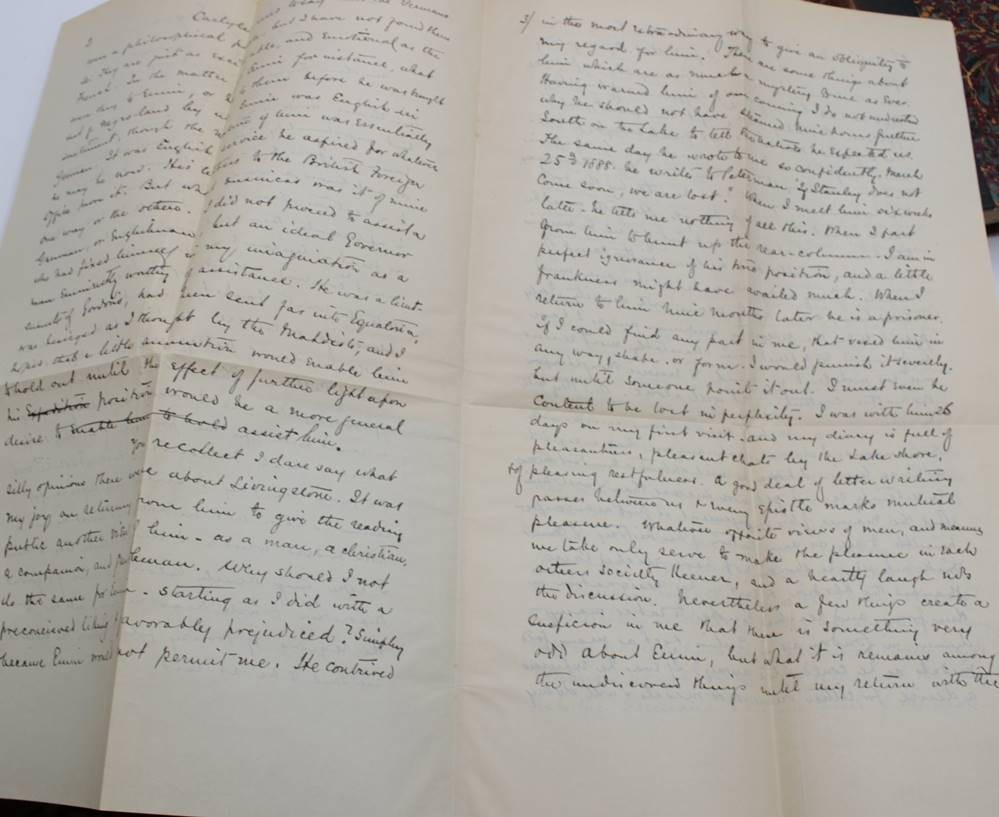 2
Carlyle
was a philosophical but I have not found them
so. They are just as and emotional as the
French. In the matter Emin for instance, what
was they to Emin, or to them before he was brought
out of Negro-land by Emin was English in
sentiment, though the of him was essentially
German. It was English service he aspired for whatever
he may be now. His letters to the British Foreign
Office prove it. But what business was it of mine
one way or the other. I did not proceed to assist a
German, or Englishman but an ideal Governor
who had fixed himself in my imagination as a
man eminently worthy of assistance. He was a lieut-
enant of Gordons, had been sent far into Equatoria,
was besieged as I thought by the Mahdists, and I
a little ammunition would enable him
to hold out until the effect of further light upon
his Expedition position would be a more general
desire to enable him to hold assist him.
You recollect I dare say what
silly opinions there were about Livingstone. It was
my joy on returning from him to give the reading
public another of him - as a man, a christian,
a companion, and gentleman. Why should I not
do the same for Emin - starting as I did with a
preconceived liking favorably prejudiced? Simply
because Emin would not permit me. He contrived
3/ in the most extraordinary way to give an obliquity to
my regard for him. There are some things about
him which are as much a mystery to me as ever.
Having warned him of our coming I do not understand
why he should not have steamed nine hours further
South on the Lake to tell the natives he expected us.
The same day he wrote to me so confidently, March
25th 1888. he writes to Peterman "if Stanley does not
come soon, we are lost". When I meet him six weeks
later - he tells me nothing of all this. When I part
from him to hunt up the rear-column - I am in
perfect ignorance of his true position, and a little
frankness might have availed much. When I
return to him nine months later he is a prisoner.
If I could find any part in me, that vexed him in
any way, shape, or form. I would punish it severely.
but until someone point it out. I must even be
content to be lost in perplexity. I was with him 26
days on my first visit - and my diary is full of
pleasantness, pleasant chats by the Lake shore,
& of pleasing restfulness. A good deal of letter writing
passes between us & every Epistle marks mutual
pleasure. Whatever opposite views of men, and means
we take only serve to make the pleasure in each
others society keener, and a hearty laugh ends
the discussion. Nevertheless a few things create a
suspicion in me that there is something very
odd about Emin, but what it is remains among
the undiscovered things until my return with the